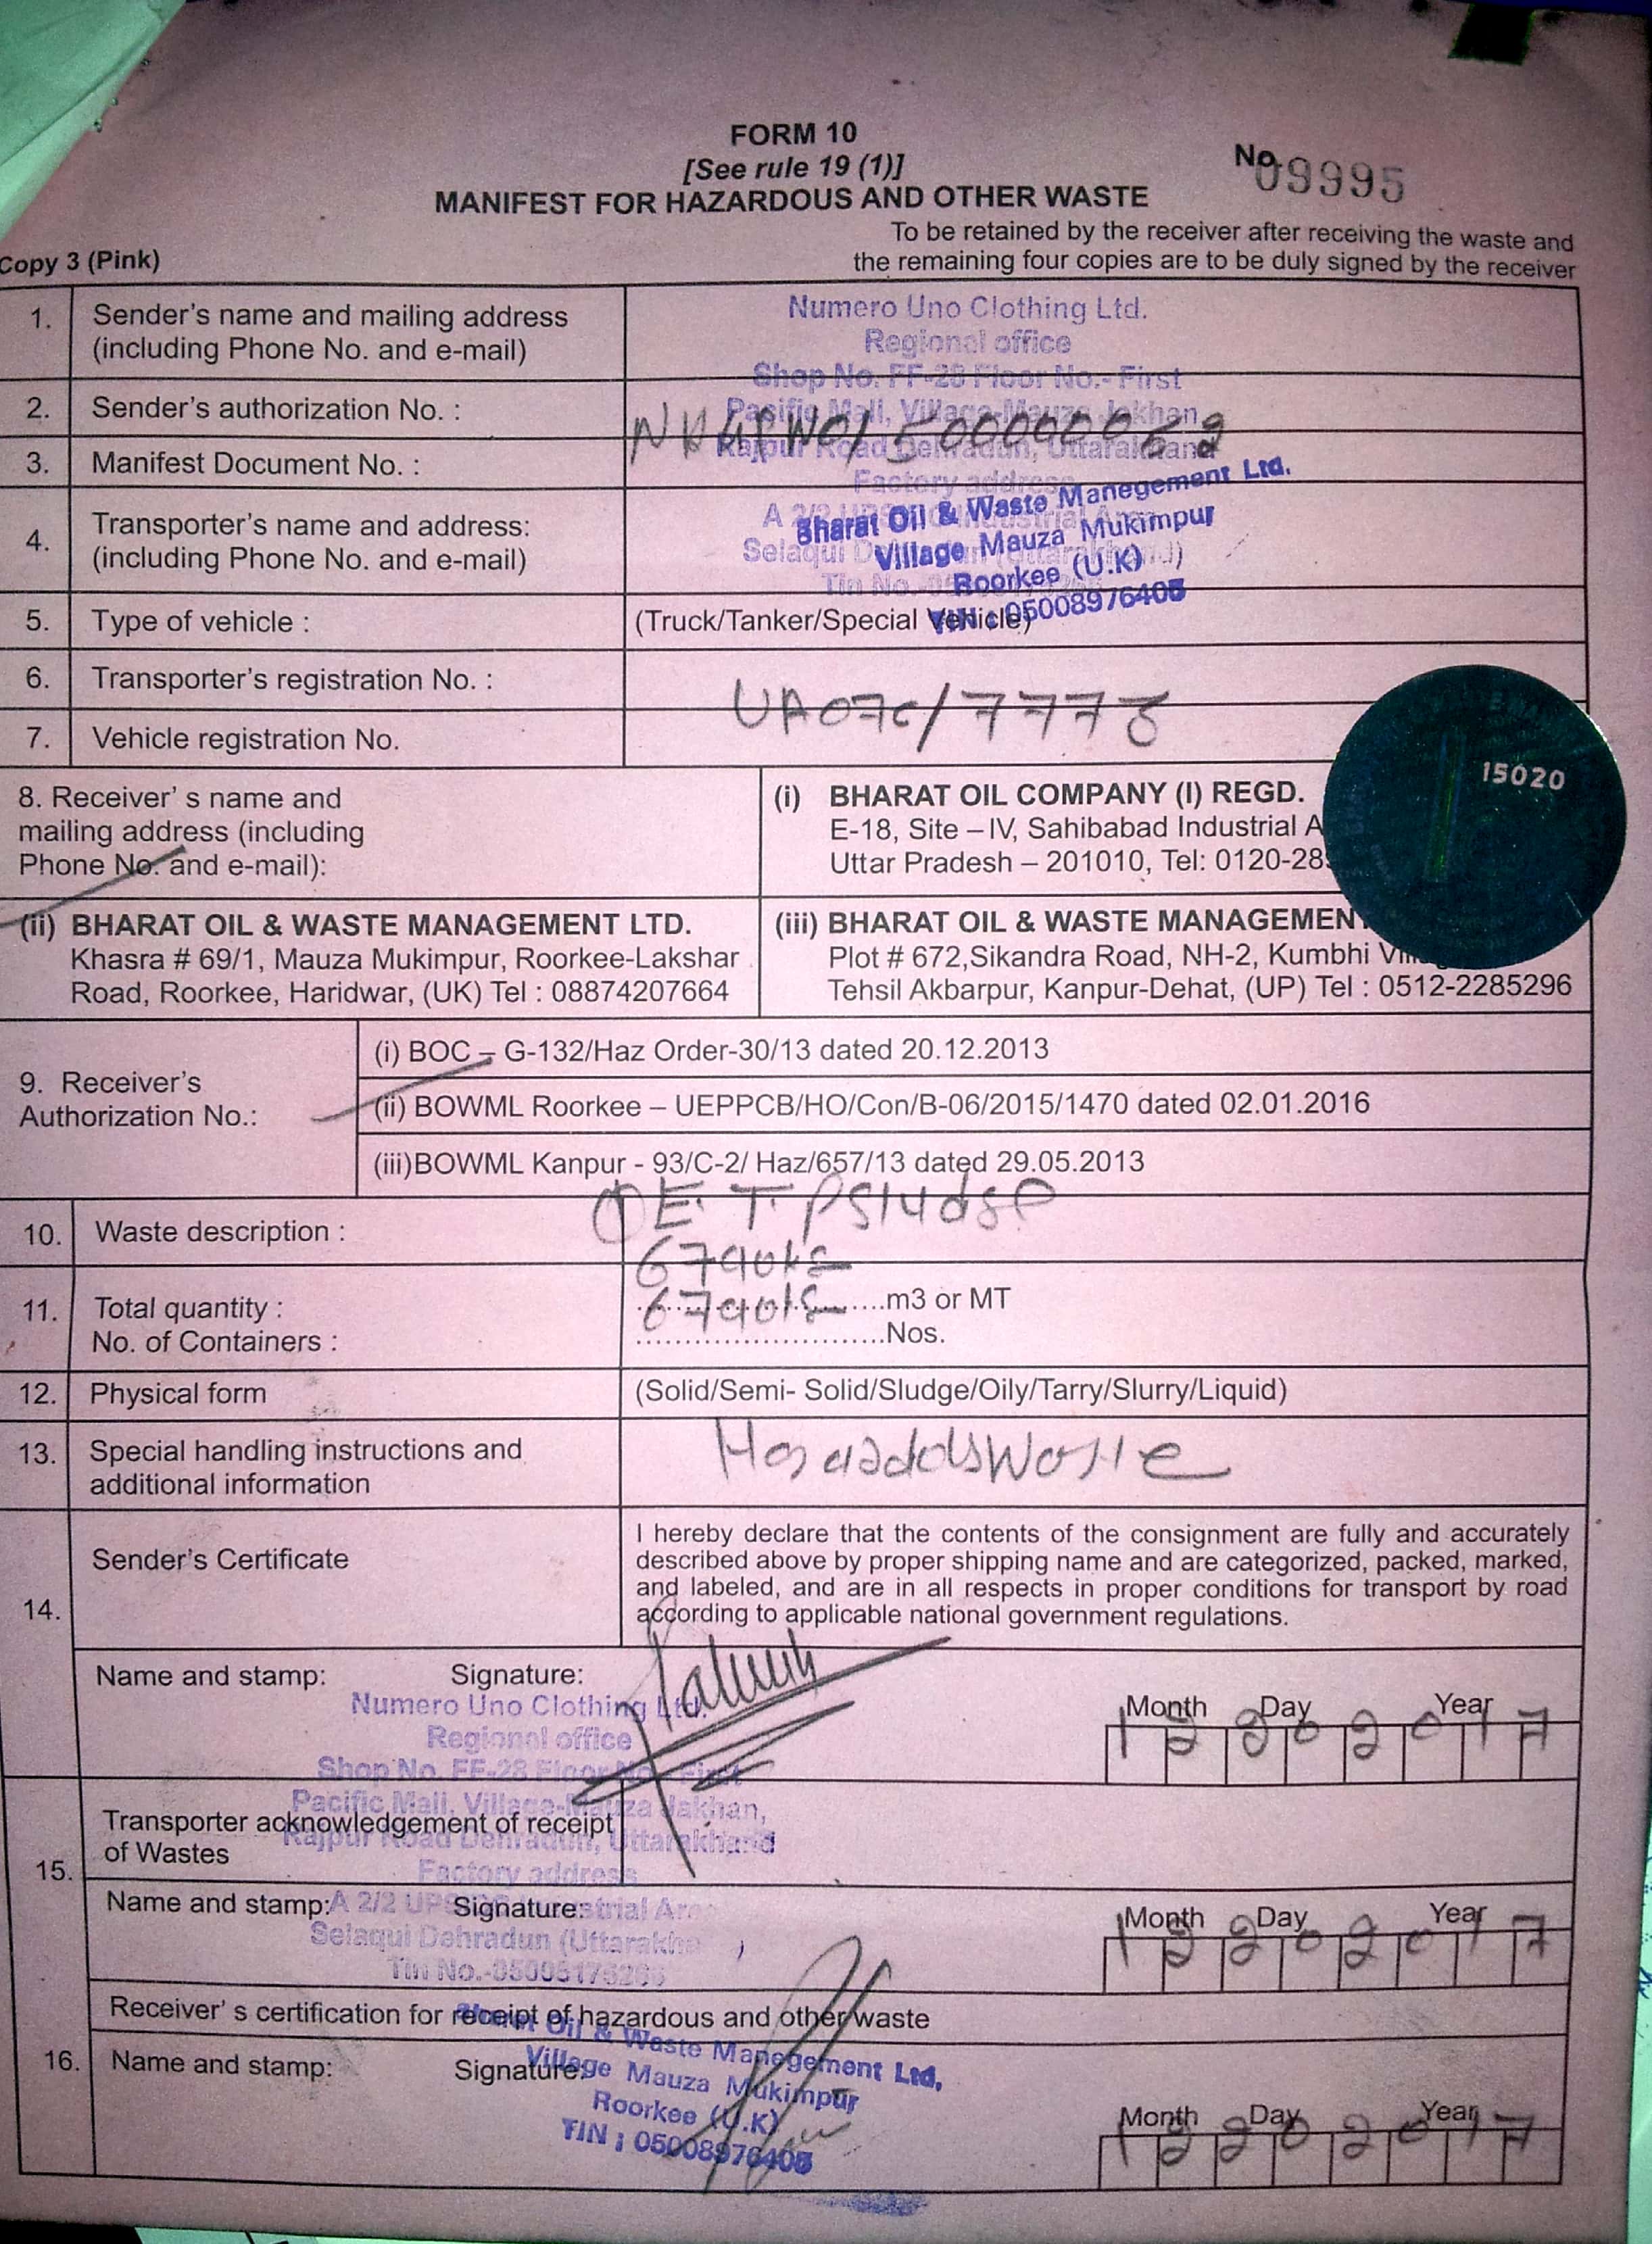 FORM 10
[See rule 19 (1)]
No. 09995
MANIFEST FOR HAZARDOUS AND OTHER WASTE
To be retained by the receiver after receiving the waste and
Copy 3 (Pink)
the remaining four copies are to be duly signed by the receiver
1. Sender's name and mailing address
(including Phone No. and e-mail)
Numero Uno Clothing Ltd.
Regional office
Shop No. FF-28 Floor No.- First
Pacific Mall, Village-Mauza Jakhan,
Rajpur Road Dehradun, Uttarakhand
Factory address
2. Sender's authorization No. :
3. Manifest Document No. :
4. Transporter's name and address:
(including Phone No. and e-mail)
Bharat Oil & Waste Manegement Ltd.
Village Mauza Mukimpur
Roorkee (U.K)
TIN : 05008976405
5. Type of vehicle :
(Truck/Tanker/Special Vehicle)
6. Transporter's registration No. :
7. Vehicle registration No.
UA07C/7778
8. Receiver' s name and
mailing address (including
Phone No. and e-mail):
(i) BHARAT OIL COMPANY (I) REGD.
E-18, Site – IV, Sahibabad Industrial A
Uttar Pradesh – 201010, Tel: 0120-28
15020
(ii) BHARAT OIL & WASTE MANAGEMENT LTD.
Khasra # 69/1, Mauza Mukimpur, Roorkee-Lakshar
Road, Roorkee, Haridwar, (UK) Tel : 08874207664
(iii) BHARAT OIL & WASTE MANAGEMEN
Plot # 672,Sikandra Road, NH-2, Kumbhi
Tehsil Akbarpur, Kanpur-Dehat, (UP) Tel : 0512-2285296
9. Receiver's
Authorization No.:
(i) BOC – G-132/Haz Order-30/13 dated 20.12.2013
(ii) BOWML Roorkee – UEPPCB/HO/Con/B-06/2015/1470 dated 02.01.2016
(iii)BOWML Kanpur - 93/C-2/ Haz/657/13 dated 29.05.2013
10. Waste description :
E.T.P Sludge
6790kg
11. Total quantity :
6790kg m3 or MT
No. of Containers :
Nos.
12. Physical form
(Solid/Semi- Solid/Sludge/Oily/Tarry/Slurry/Liquid)
13. Special handling instructions and
additional information
14. Sender's Certificate
I hereby declare that the contents of the consignment are fully and accurately
described above by proper shipping name and are categorized, packed, marked,
and labeled, and are in all respects in proper conditions for transport by road
according to applicable national government regulations.
Name and stamp: Signature:
Numero Uno Clothing Ltd.
Regional office
Shop No. FF-28 Floor No.- First
Pacific Mall, Village-Mauza Jakhan,
Rajpur Road Dehradun, Uttarakhand
Factory address
Month Day Year
1 2 2 0 2 0 1 7
15. Transporter acknowledgement of receipt
of Wastes
Name and stamp: Signature:
Selaqui Dehradun
Month Day Year
1 2 2 0 2 0 1 7
16. Receiver' s certification for receipt of hazardous and other waste
Name and stamp: Signature:
Bharat Oil & Waste Manegement Ltd.
Village Mauza Mukimpur
Roorkee (U.K)
TIN : 05008976405
Month Day Year
1 2 2 0 2 0 1 7